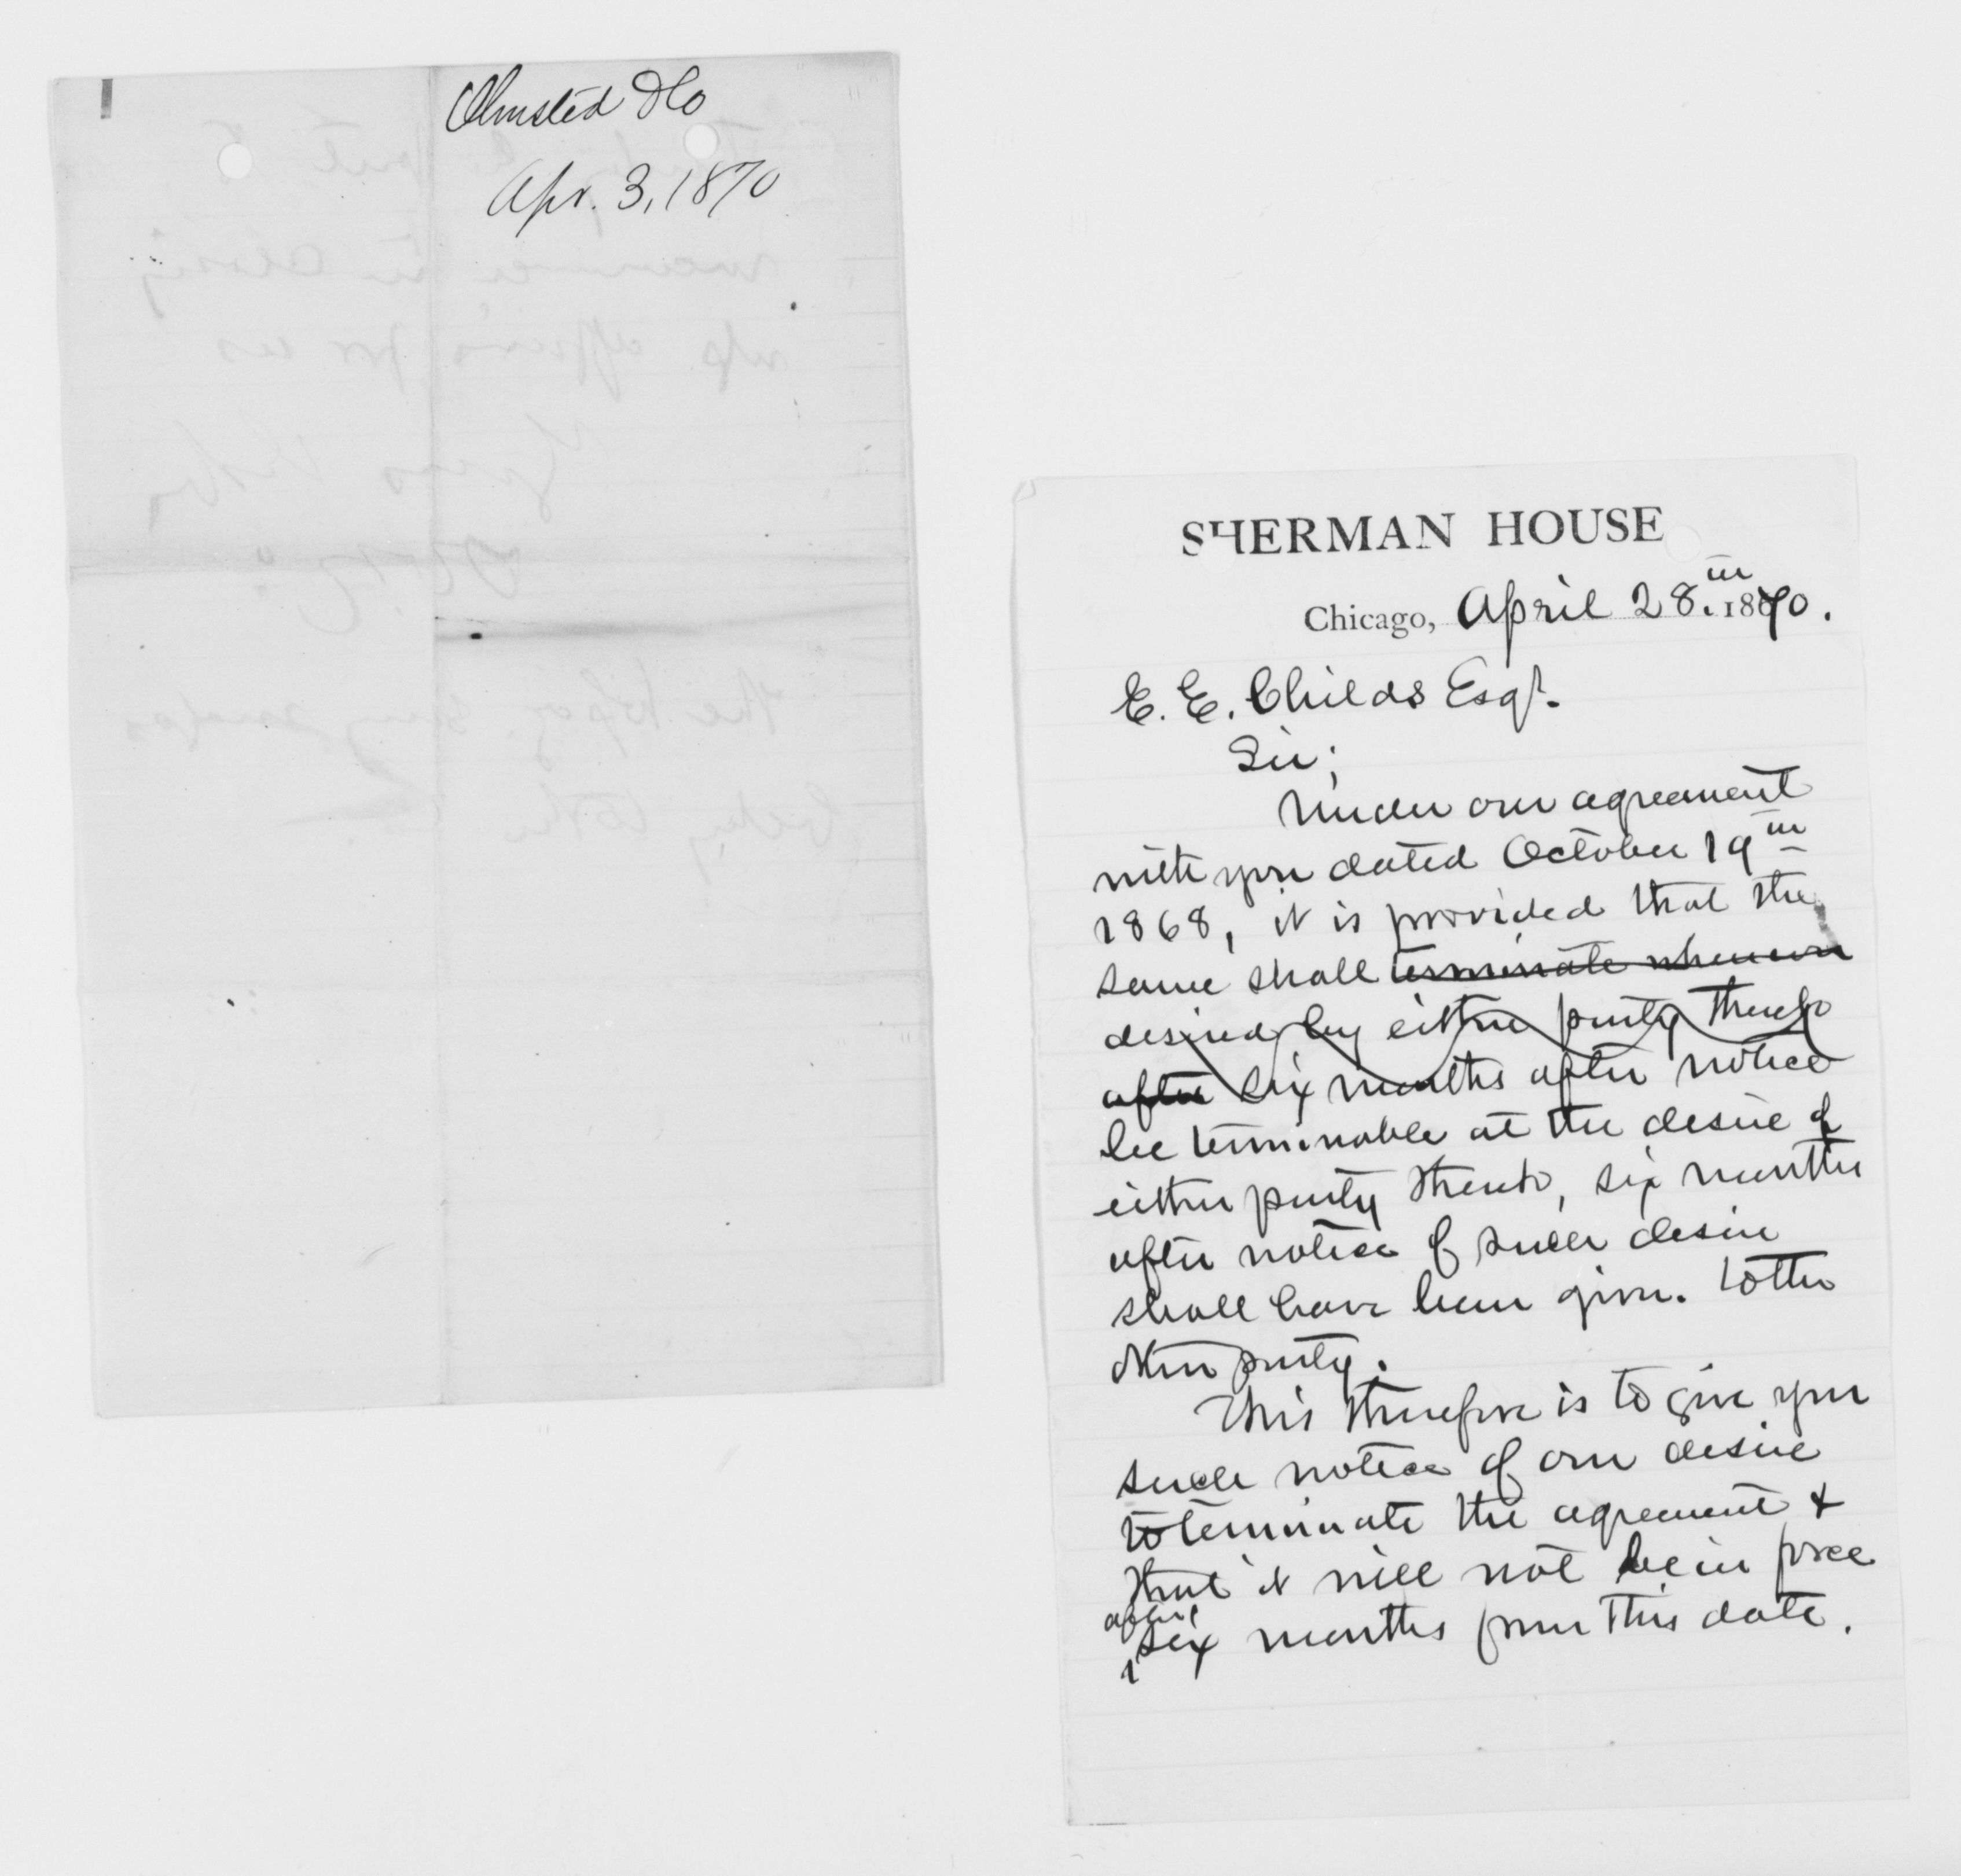 Olmsted FLO
Apr. 3, 1870
SHERMAN HOUSE
Chicago, April 28.th 1870.
E. E. Childs Esqr.
Sir;
Under our agreement
with you dated October 19th
1868, it is provided that the
same shall terminate whenever
desired by either party thereto
after six months after notice
be terminable at the desire of
either party thereto, six months
after notice of such desire
shall have been given. to the
other party.
This therefore is to give you
such notice of our desire
to terminate the agreement &
that it will not be in force
after
six months from this date.